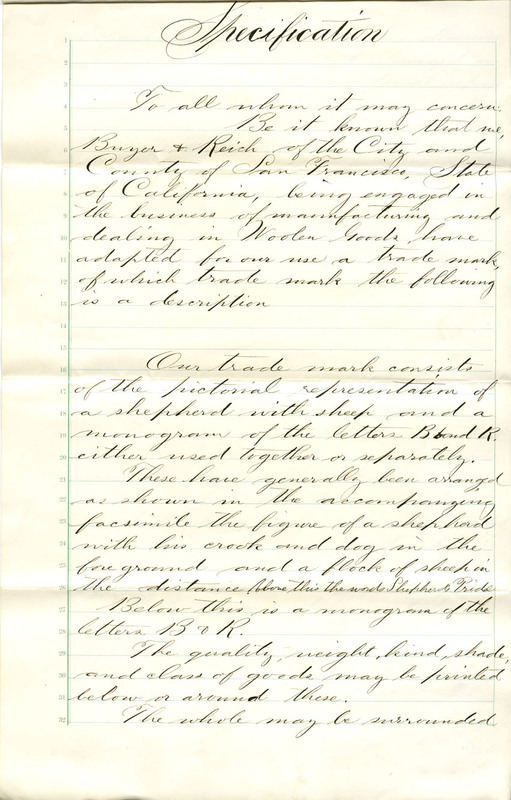 Specification
To all whom it may concern:
Be it known that we,
Buyer & Reich of the City and
County of San Francisco, State
of California, being engaged in
the business of manufacturing and
dealing in Woolen Goods, have
adapted for our use a trade mark,
of which trade mark the following
is a description
Our trade mark consists
of the pictorial representation of
a shepherd with sheep and a
monogram of the letters B and R.
either used together or separately.
These have generally been arranged
as shown in the accompanying
facsimile the figure of a shepherd
with his crook and dog in the
foreground and a flock of sheep in
the distance, Above this the words Shepherds Pride
Below this is a monogram of the
letters B & R.
The quality, weight, kind, shade,
and class of goods may be printed
below or around these.
The whole may be surrounded
1
2
3
4
5
6
7
8
9
10
11
12
13
14
15
16
17
18
19
20
21
22
23
24
25
26
27
28
29
30
31
32